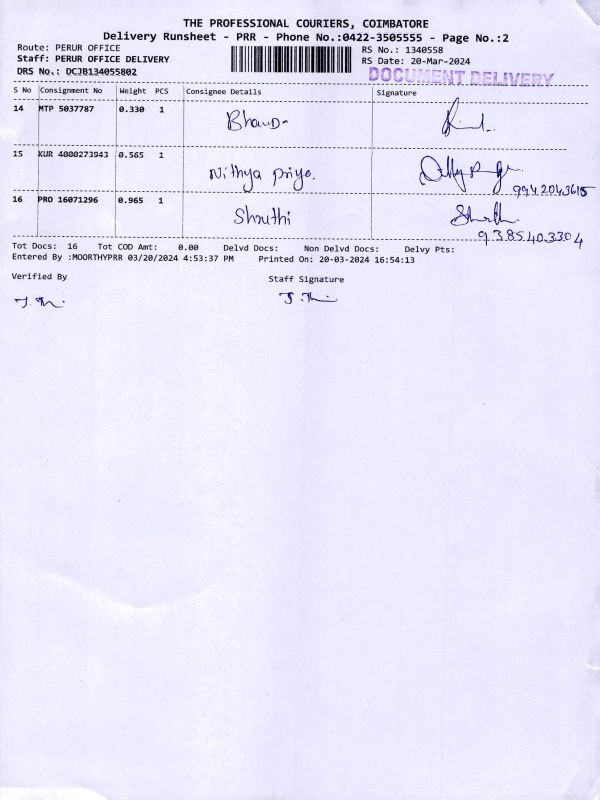 THE PROFESSIONAL COURIERS, COIMBATORE
Delivery Runsheet - PRR - Phone No.:0422-3505555 - Page No.:2
Route: PERUR OFFICE RS No.: 1340558
Staff: PERUR OFFICE DELIVERY RS Date: 20-Mar-2024
DRS No.: DCJB134055802 DOCUMENT DELIVERY
S No Consignment No Weight PCS Consignee Details Signature
14 MTP 5037787 0.330 1
15 KUR 4000273943 0.565 1 Nithya priya.
9942043615
16 PRO 16071296 0.965 1 Shruthi
9385403304
Tot Docs: 16 Tot COD Amt: 0.00 Delvd Docs: Non Delvd Docs: Delvy Pts:
Entered By :MOORTHYPRR 03/20/2024 4:53:37 PM Printed On: 20-03-2024 16:54:13
Verified By Staff Signature